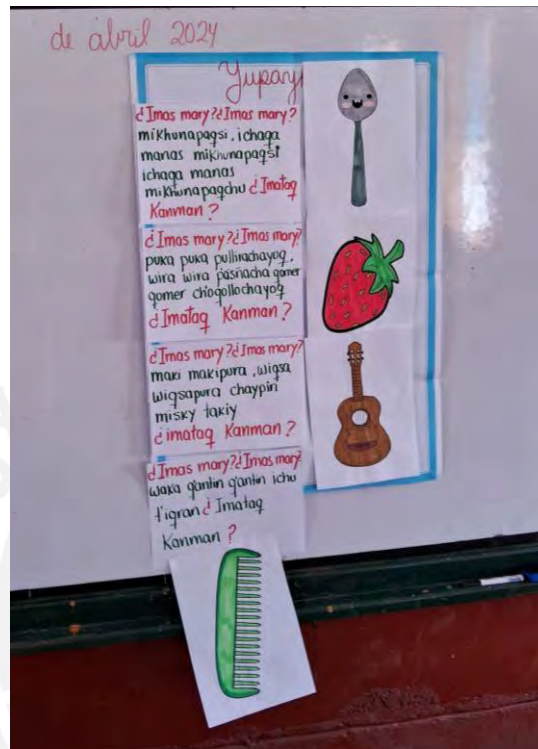 de abril 2024
Yupay
¿Imas mary?¿Imas mary?
mikhunapaqsi, ichaqa
manas mikhunapaqsi
ichaqa manas
mikhunapaqchu ¿Imataq
Kanman?
¿Imas mary?¿Imas mary?
puka puka pullirachayoq,
wira wira pasñacha qomer
qomer chogollochayoq
¿Imataq Kanman?
¿Imas mary?¿Imas mary?
maki makipura, wiqsa
wiqsapura chaypin
misky takiy
¿imataq Kanman?
¿Imas mary?¿Imas mary?
waxa qantin qantin ichu
t'iqran ¿Imataq
Kanman?